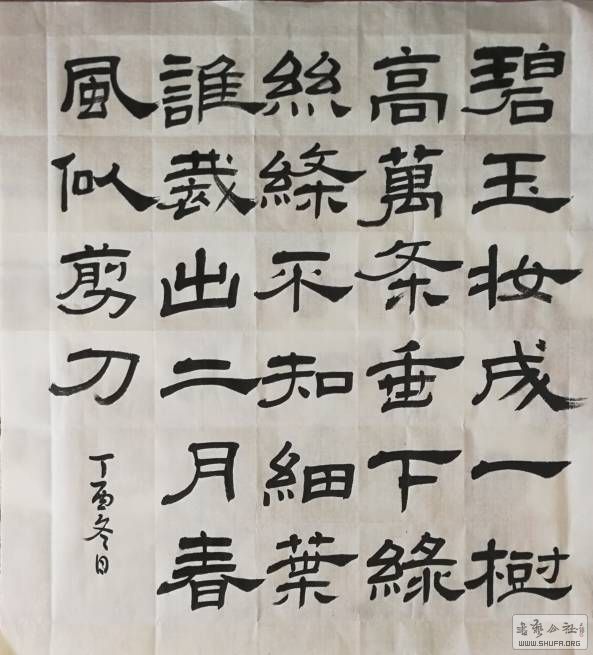 碧玉妆成一樹
高萬条垂下綠
絲縧不知細葉
誰裁出二月春
風似剪刀
丁酉冬日
WWW.SHUFA.ORG